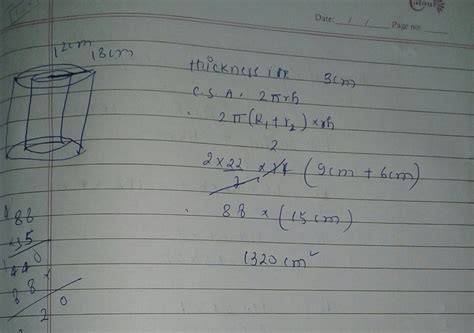 Date: / / Page no:
12cm
18cm
thickness is 3cm
C.S.A. 2πrh
2π(R₁+r₂)×h
2
2×22 × 14 (9cm + 6cm)
7
88 × (15cm)
1320 cm²
88
×15
440
88×
20